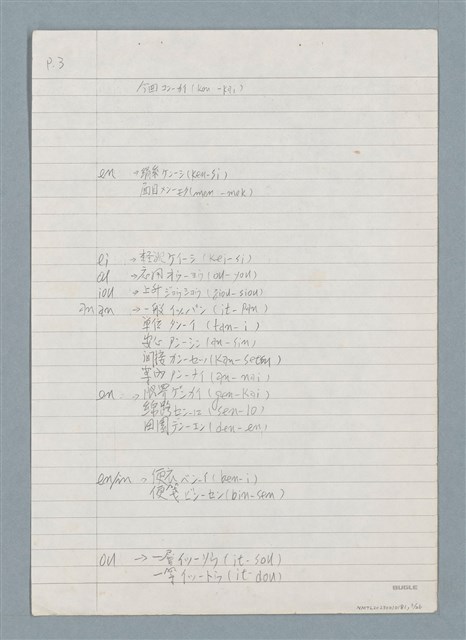 P.3
今回 コン-カイ (kon-kai)
en → 絹糸 ケン-シ (ken-si)
面目 メン-モク (men-mok)
ei → 軽視 ケイ-シ (kei-si)
ou → 応用 オウ-ヨウ (ou-you)
iou → 上昇 ジョウ-ショウ (ziou-siou)
an → 一般 イッ-パン (it-pan)
単位 タン-イ (tan-i)
安心 アン-シン (an-sin)
間接 カン-セツ
案内 アン-ナイ (an-nai)
en → 限界 ゲン-カイ (gen-kai)
線路 セン-ロ (sen-lo)
田園 デン-エン (den-en)
en/in → 便衣 ベン-イ (ben-i)
便箋 ビン-セン (bin-sen)
ou → 一層 イッ-ソウ (it-sou)
一等 イッ-トウ (it-dou)
BUGLE